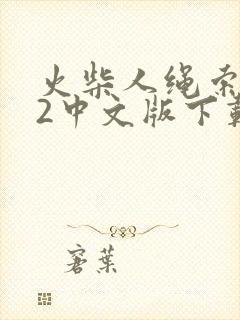 火柴人绳索
2中文版下载
窨葉